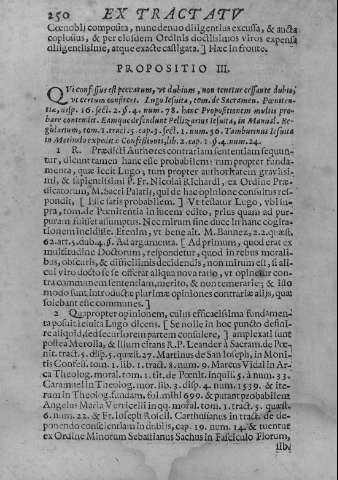 250 EX TRACTATV
Cœnobij composita, nunc denuo diligentius excussa, & aucta
copiosius, & per eiusdem Ordinis doctissimos viros expensa
diligentissime, atque exacte castigata. ] Hæc in fronte.
PROPOSITIO III.
QVi confessus est peccatum, vt dubium, non tenetur cessante dubio,
vt certum confiteri. Lugo Iesuita, tom. de Sacramen. Pœniten-
tiæ, disp. 16. sect. 2. §. 4. num. 78. hanc Propositionem multis pro-
bare contenit. Eamque defendunt Pellizarius Iesuita, in Manual. Re-
gularium, tom. 1. tract. 5. cap. 3. sect. 1. num. 56. Tamburinus Iesuita
in Methodo expeditæ Confessionis, lib. 2. cap. 1. §. 4. num. 24.
1 R. Prædicti Authores contrariam sententiam sequun-
tur, dicunt tamen hanc esse probabilem: tum propter funda-
menta, quæ iecit Lugo; tum propter authoritatem gravissi-
mi, & sapientissimi P. Fr. Nicolai Richardi, ex Ordine Præ-
dicatorum, M. Sacri Palatij, qui de hac opinione consultus res-
pondit, [ Esse satis probabilem. ] Vt testatur Lugo, vbi in-
pra, tom. de Pœnitentia in lucem editur, plus quam ad pur-
puram fuisset assumptus. Nec mirum sine duce in hanc cogita-
tionem incidisse. Etenim, vt bene ait M. Bannez, 2. 2. quæst.
62. art. 3. dub. 4. §. Ad argumenta. [ Ad primum, quod erat ex
multitudine Doctorum, respondetur, quod in rebus morali-
bus, obscuris, & difficilimis decidendis, non mirum est, si ali-
cui viro docto se se offerat aliqua nova ratio, vt opinetur con-
tra communem sententiam, merito, & non temerarie; & illo
modo sunt introductæ plurimæ opiniones contrariæ alijs, quæ
solebant esse communes. ]
2 Quapropter opinionem, cuius efficacissima fundamen-
ta posuit Iesuita Lugo dicens, [ Se nolle in hoc puncto defini-
re aliquid, sed securiorem partem consulere, ] amplexati sunt
postea Merolla, & illum citans R. P. Leander à Sacram. de Pœ-
nit. tract. 5. disp. 5. quæst. 27. Martinus de San Ioseph, in Moni-
tis Confess. tom. 1. lib. 1. tract. 8. num. 9. Marcus Vidal in Ar-
ca Theolog. moral. tom. 1. tit. de Pœnit. inquis. 5. à num. 33.
Caramuel in Theolog. mor. lib. 3. disp. 4. num. 1539. & ite-
rum in Theolog. fundam. fol. mihi 699. & putant probabilem
Angelus Maria Verricelli in qq. moral. tom. 1. tract. 5. quæst.
6. num. 22. & Fr. Ioseph Rosell. Carthusianus in tract. de de-
ponendo conscientiam in dubijs, cap. 39. num. 14. & tuentur
ex Ordine Minorum Sebastianus Sachus in Fasciculo Florum,
lib.